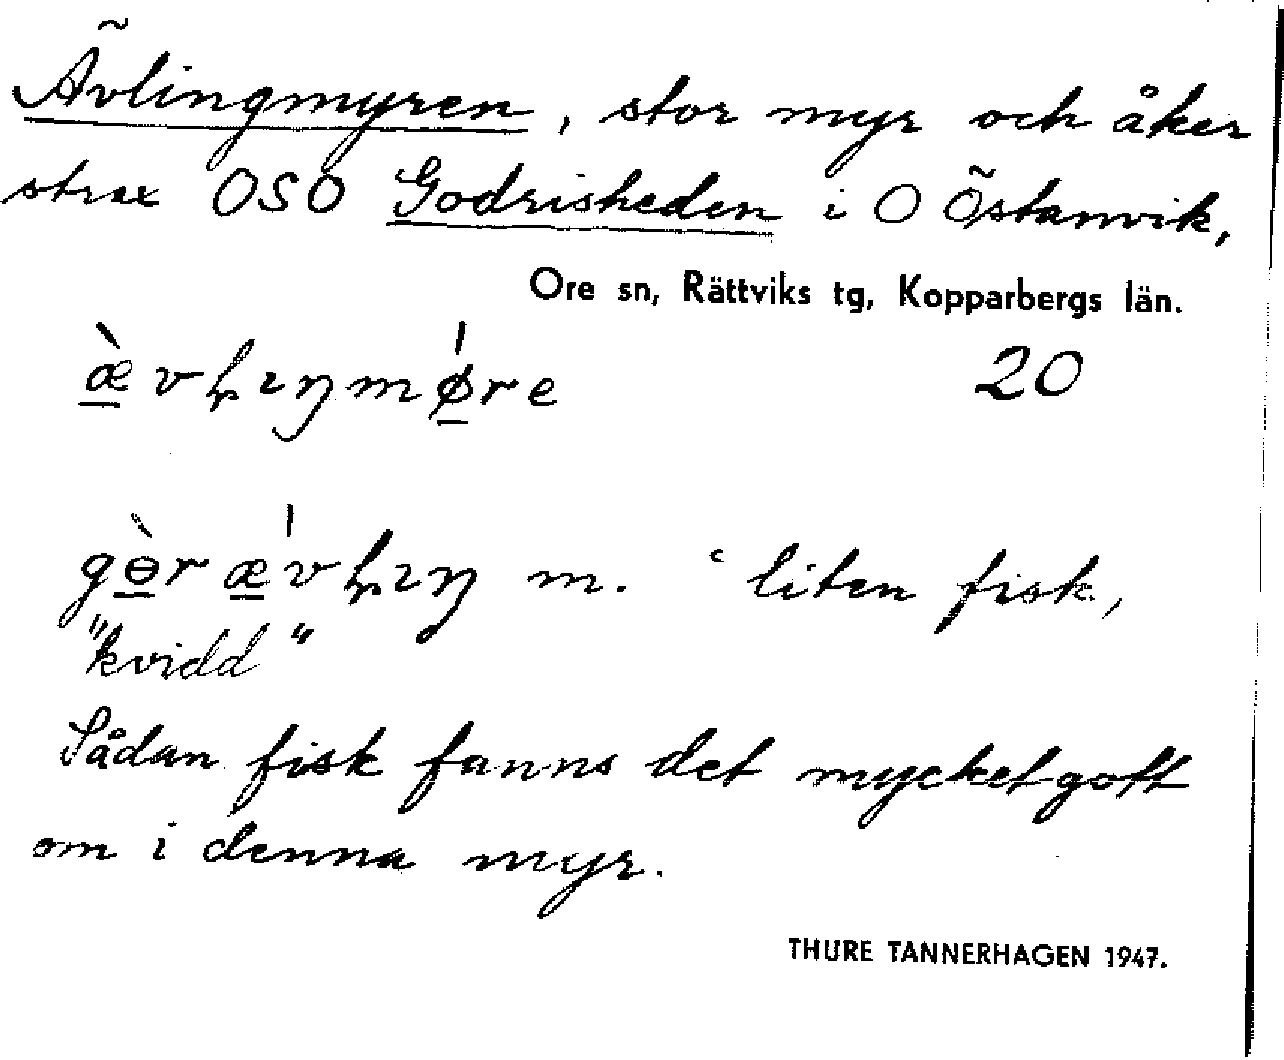 Ävlingmyren, stor myr och åker
strax OSO Godrisheden i O Östanvik,
Ore sn, Rättviks tg, Kopparbergs län.
20
gɵ̀r m. ‘liten fisk,
"kvidd"
Sådan fisk fanns det mycket gott
om i denna myr.
THURE TANNERHAGEN 1947.